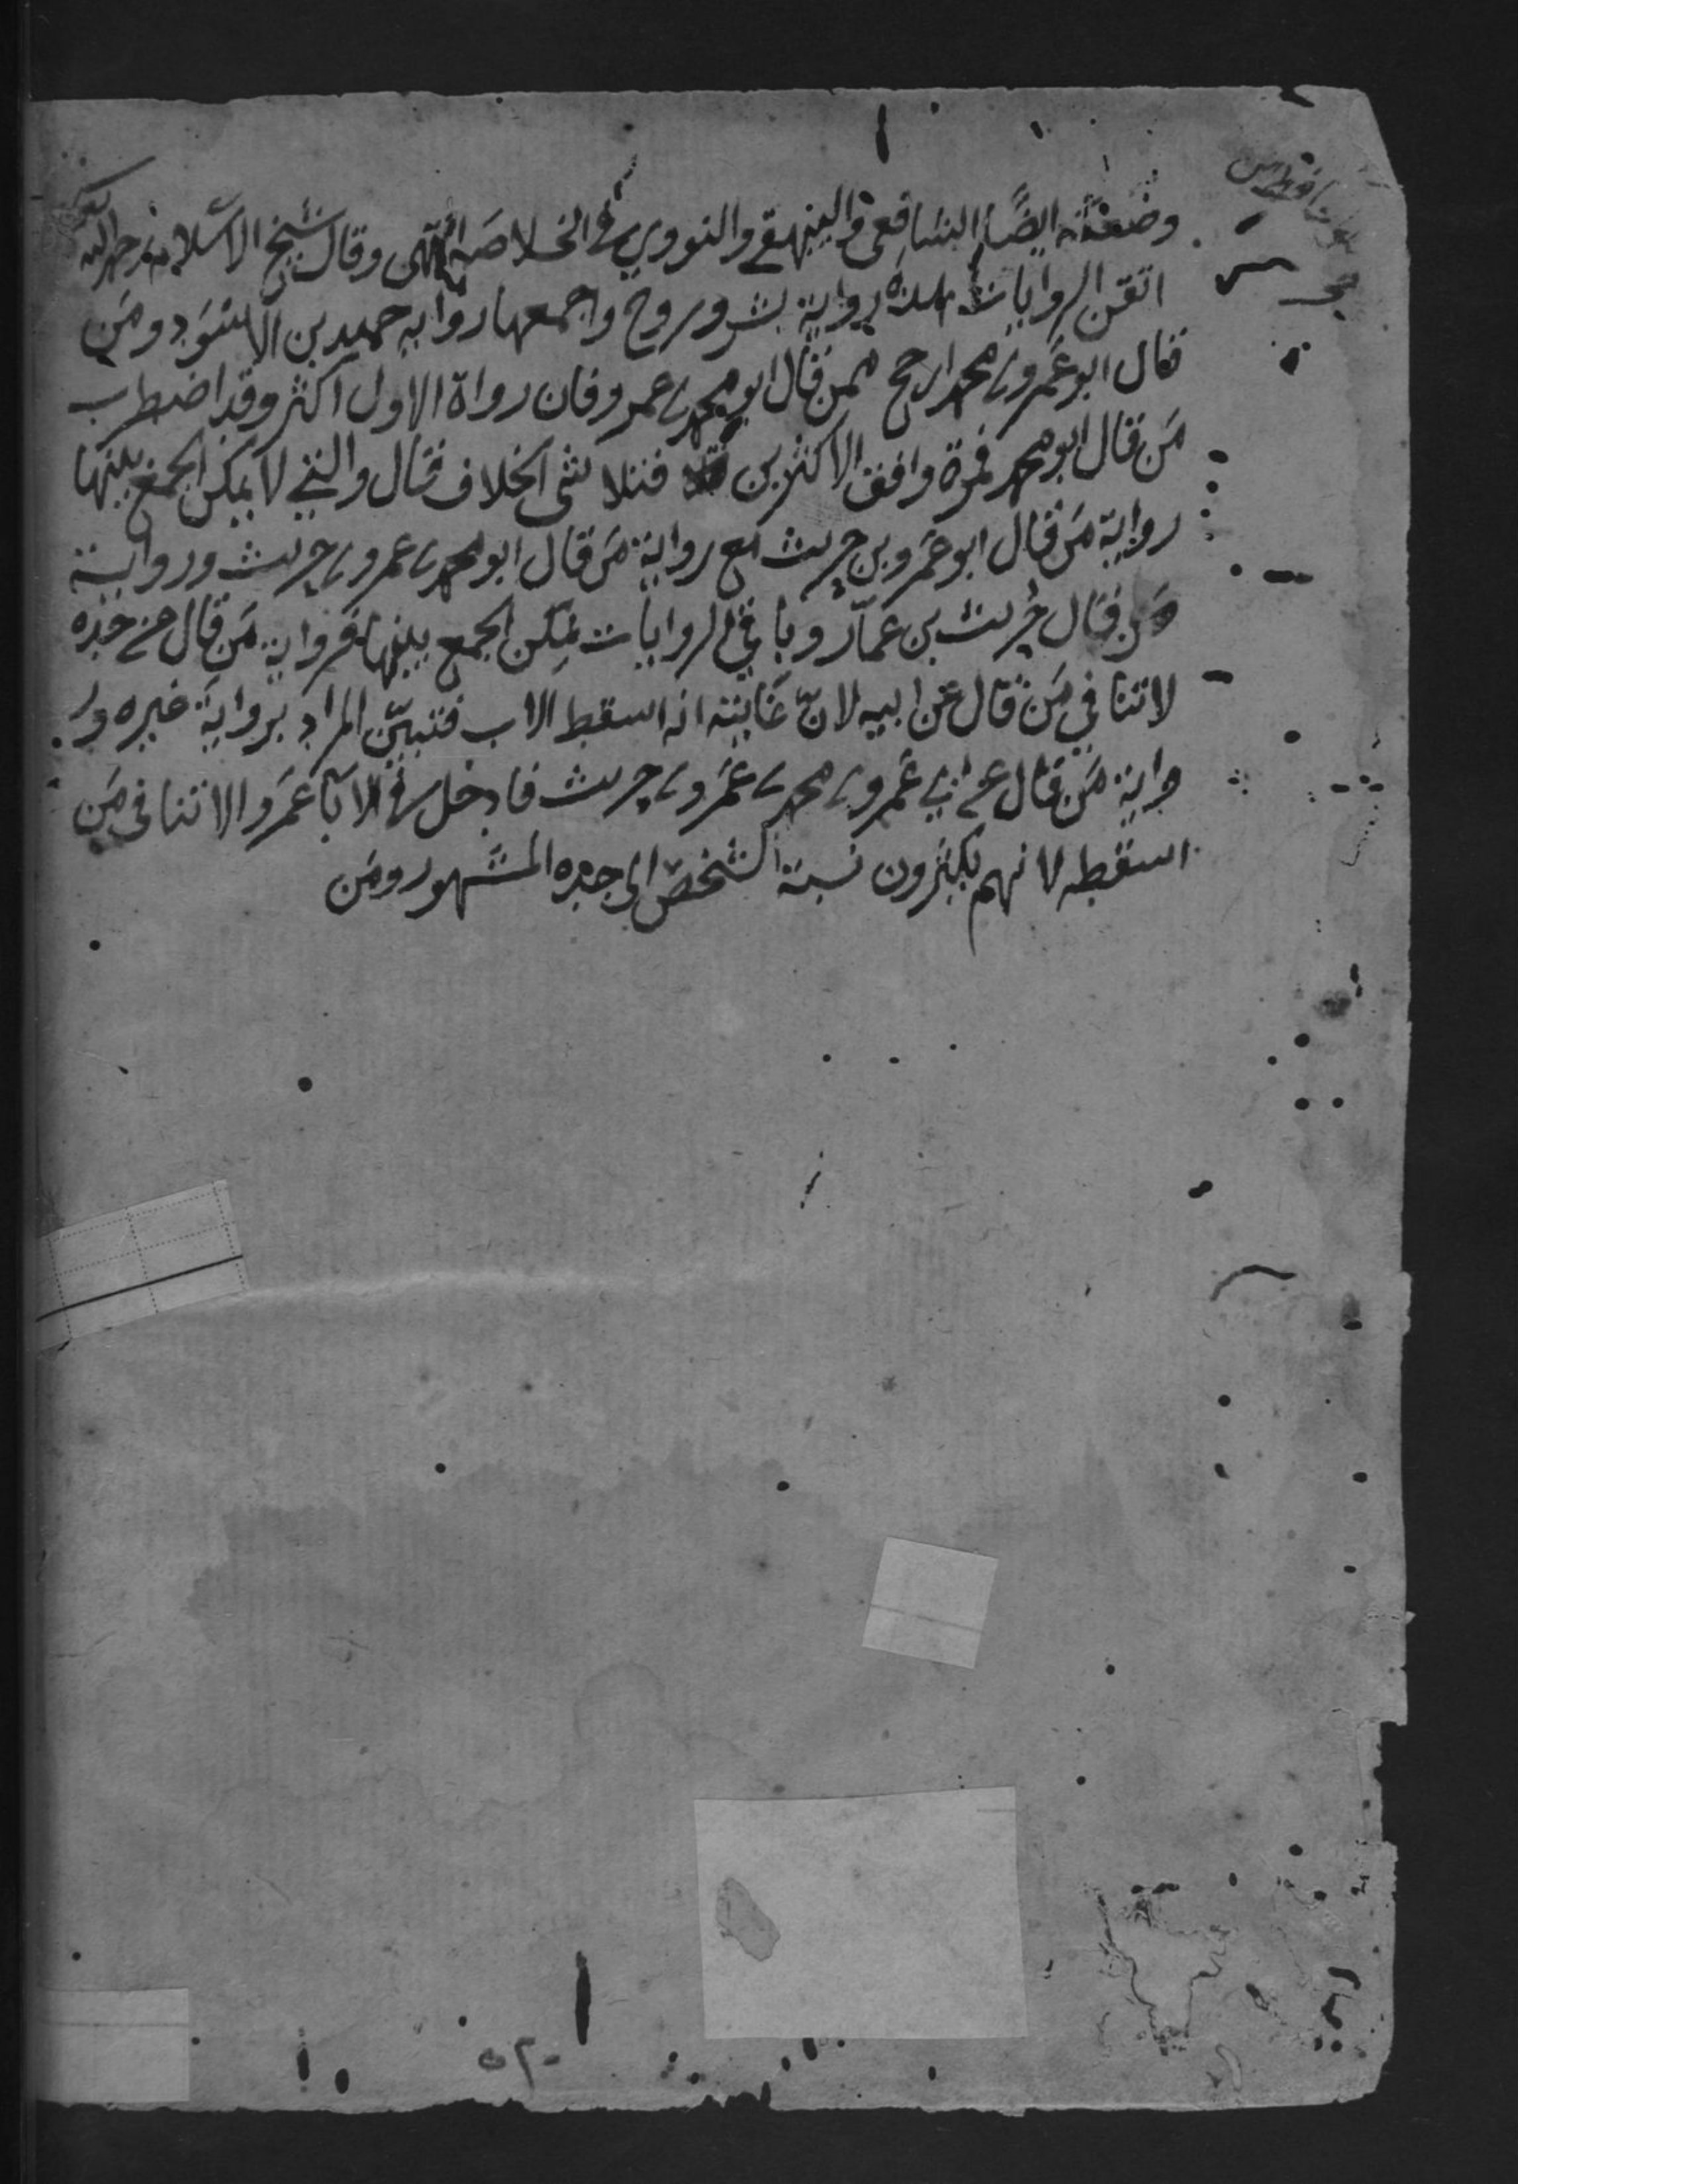 وضعفه ايضًا الشافعي والبيهقي والنووي في الخلاصة انتهى وقال شيخ الاسلام رحمه الله
اتقن الروايات هذه رواية بشر وروح واجمعها رواية حميد بن الاسود ومَن
قال ابو عمرو بن محمد ارجح ممن قال ابو محمد بن عمرو فان رواة الاول اكثر وقد اضطرب
مَن قال ابو محمد فمرة وافق الاكثرين فتلاشى الخلاف فقال والتي لا يمكن الجمع بينها
رواية مَن قال ابو عمرو بن حريث مع رواية مَن قال ابو محمد بن عمرو بن حريث ورواية
مَن قال حُريث بن عمّار وباقي الروايات يمكن الجمع بينها فرواية مَن قال عن جده
لا تنافي مَن قال عن ابيه لانّ غايته انه اسقط الاب فتبيّن المراد برواية غيره ور
واية مَن قال عن ابي عَمرو بن محمد بن عَمرو بن حريث فادخل في الاباء عَمرو الا تنافى مَن
اسقطه لانهم يكثرون نسبة الشخص الى جده المشهور ومَن